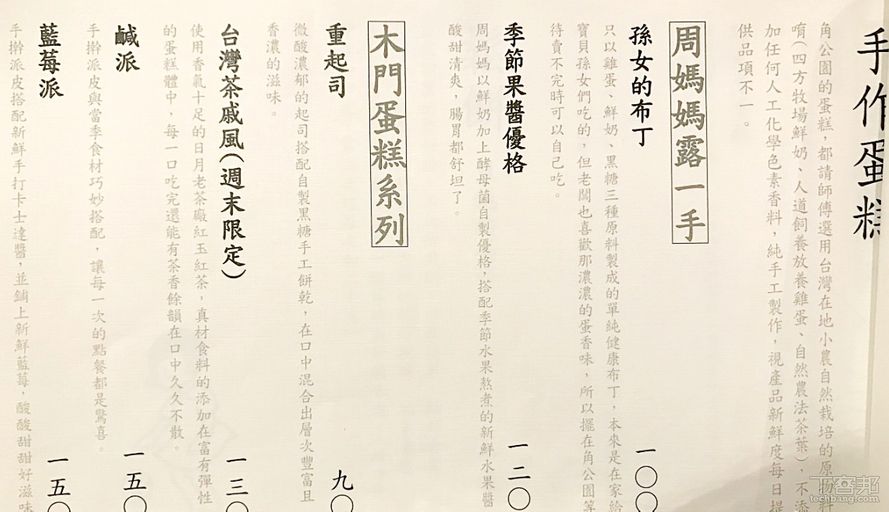 手作蛋糕
角公園的蛋糕,都請師傅選用台灣在地小農自然栽培的原物料
唷(四方牧場鮮奶、人道飼養放養雞蛋、自然農法茶葉),不添
加任何人工化學色素香料,純手工製作,視產品新鮮度每日提
供品項不一。
周媽媽露一手
孫女的布丁 一〇〇
只以雞蛋、鮮奶、黑糖三種原料製成的單純健康布丁,本來是在家給
寶貝孫女們吃的,但老闆也喜歡那濃濃的蛋香味,所以擺在角公園等
待賣不完時可以自己吃。
季節果醬優格 一二〇
周媽媽以鮮奶加上酵母菌自製優格,搭配季節水果熬煮的新鮮水果醬
酸甜清爽,腸胃都舒坦了。
木門蛋糕系列
重起司 九〇
微酸濃郁的起司搭配自製黑糖手工餅乾,在口中混合出層次豐富且
香濃的滋味。
台灣茶戚風(週末限定) 一三〇
使用香氣十足的日月老茶廠紅玉紅茶,真材食料的添加在富有彈性
的蛋糕體中,每一口吃完還能有茶香餘韻在口中久久不散。
鹹派 一五〇
手擀派皮與當季食材巧妙搭配,讓每一次的點餐都是驚喜。
藍莓派 一五〇
手擀派皮搭配新鮮手打卡士達醬,並鋪上新鮮藍莓,酸酸甜甜好滋味
T客邦
techbang.com